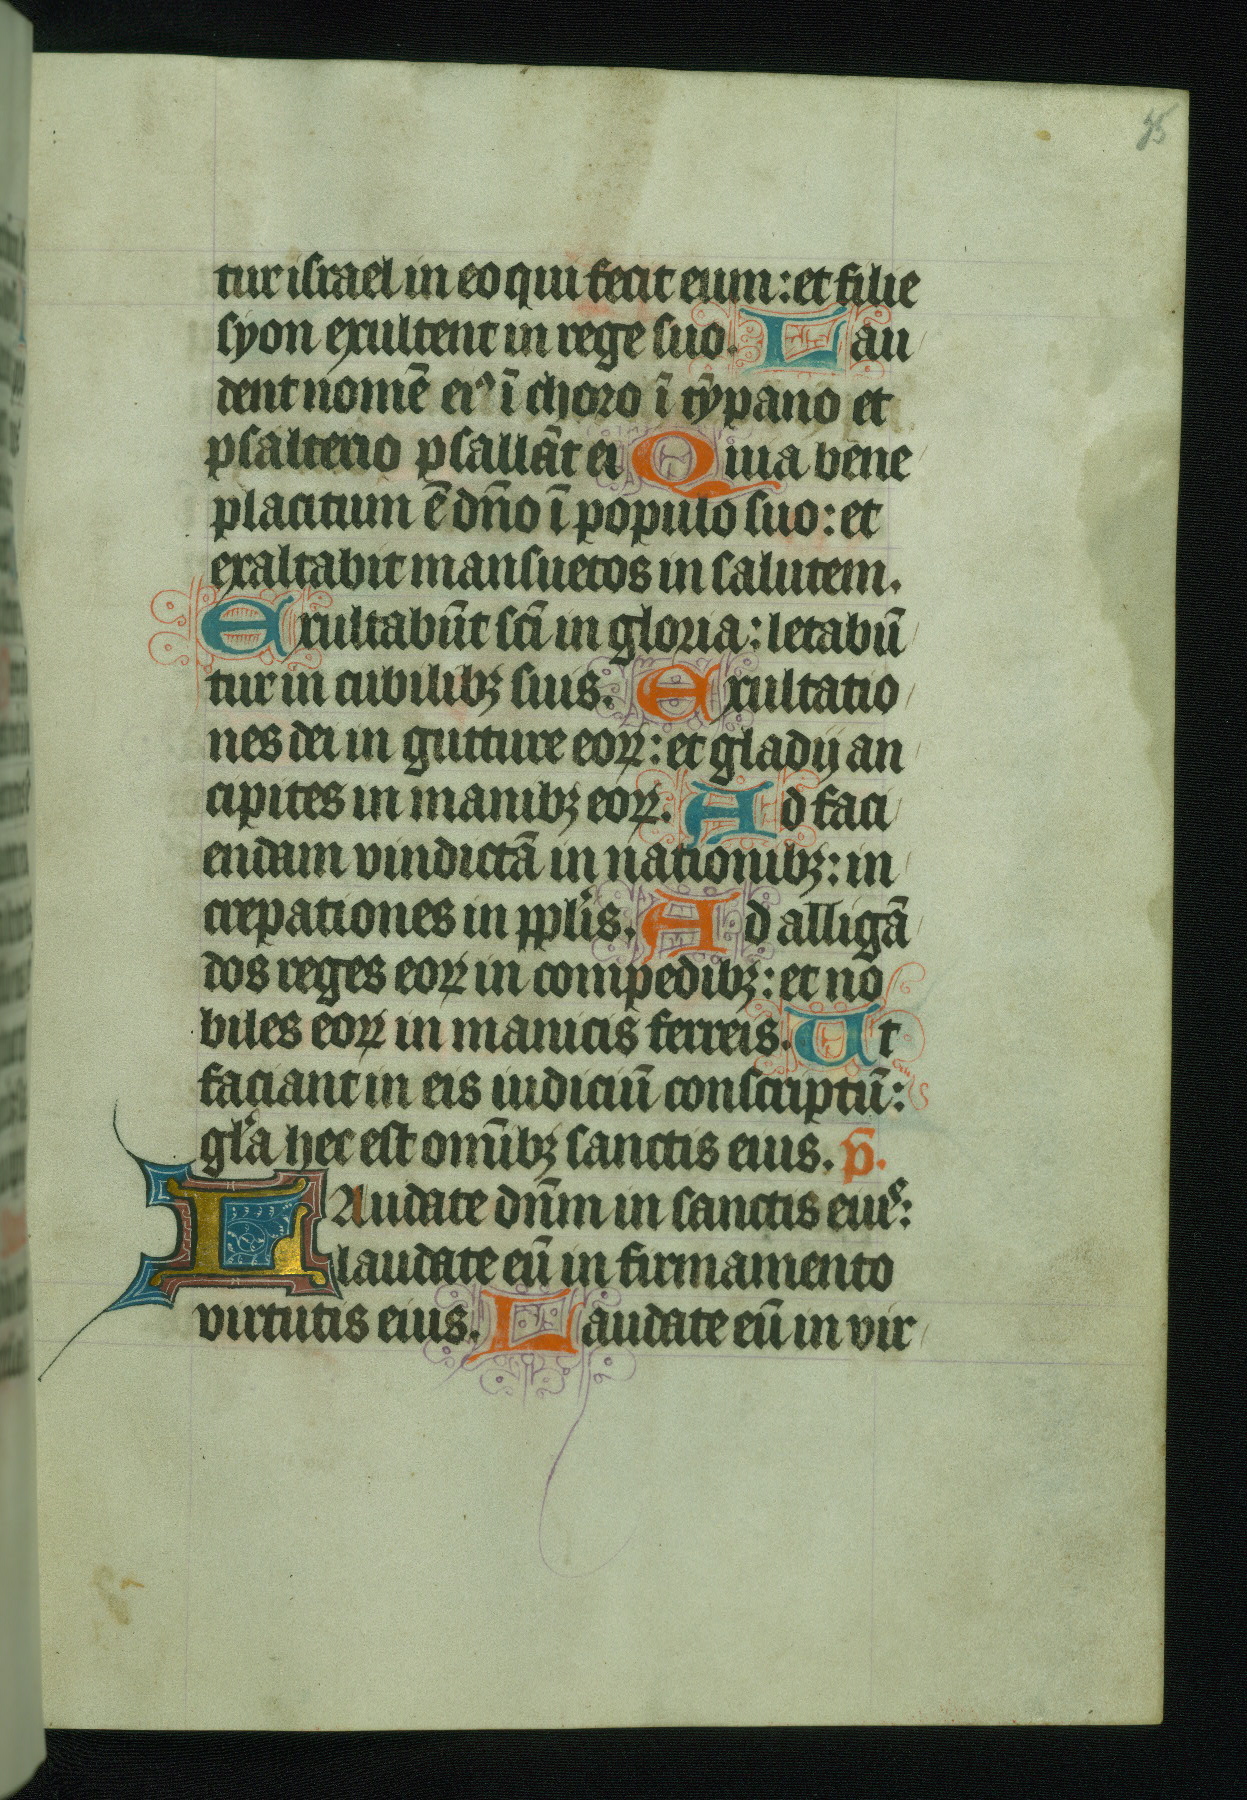 75
tur israel in eo qui fecit eum: et filie
syon exultent in rege suo. Lau
dent nomē eiꝰ ī choro ī tȳpano et
psalterio psallāt ei Quia bene
placitum ē dn̄o ī populo suo: et
exaltabit mansuetos in salutem.
Exultabūt sc̄i in gloria: letabū
tur in cubilibꝫ suis. Exultatio
nes dei in gutture eoꝝ: et gladij an
cipites in manibꝫ eoꝝ. Ad faci
endam vindictā in nationibꝫ: in
crepationes in ppl̄is. Ad alligā
dos reges eoꝝ in compedibꝫ: et no
biles eoꝝ in manicis ferreis. Ut
faciant in eis iudiciū conscriptū:
gl̄a hec est om̄ibꝫ sanctis eius. p̄.
LAudate dn̄m in sanctis eius:
laudate eū in firmamento
virtutis eius. Laudate eū in vir